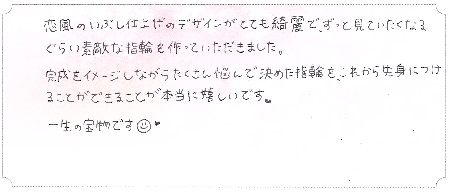 恋風のいぶし仕上げのデザインがとても綺麗で、ずっと見ていたくなる
ぐらい素敵な指輪を作っていただきました。
完成をイメージしながらたくさん悩んで決めた指輪を、これから出身につけ
ることができることが本当に嬉しいです。
一生の宝物です